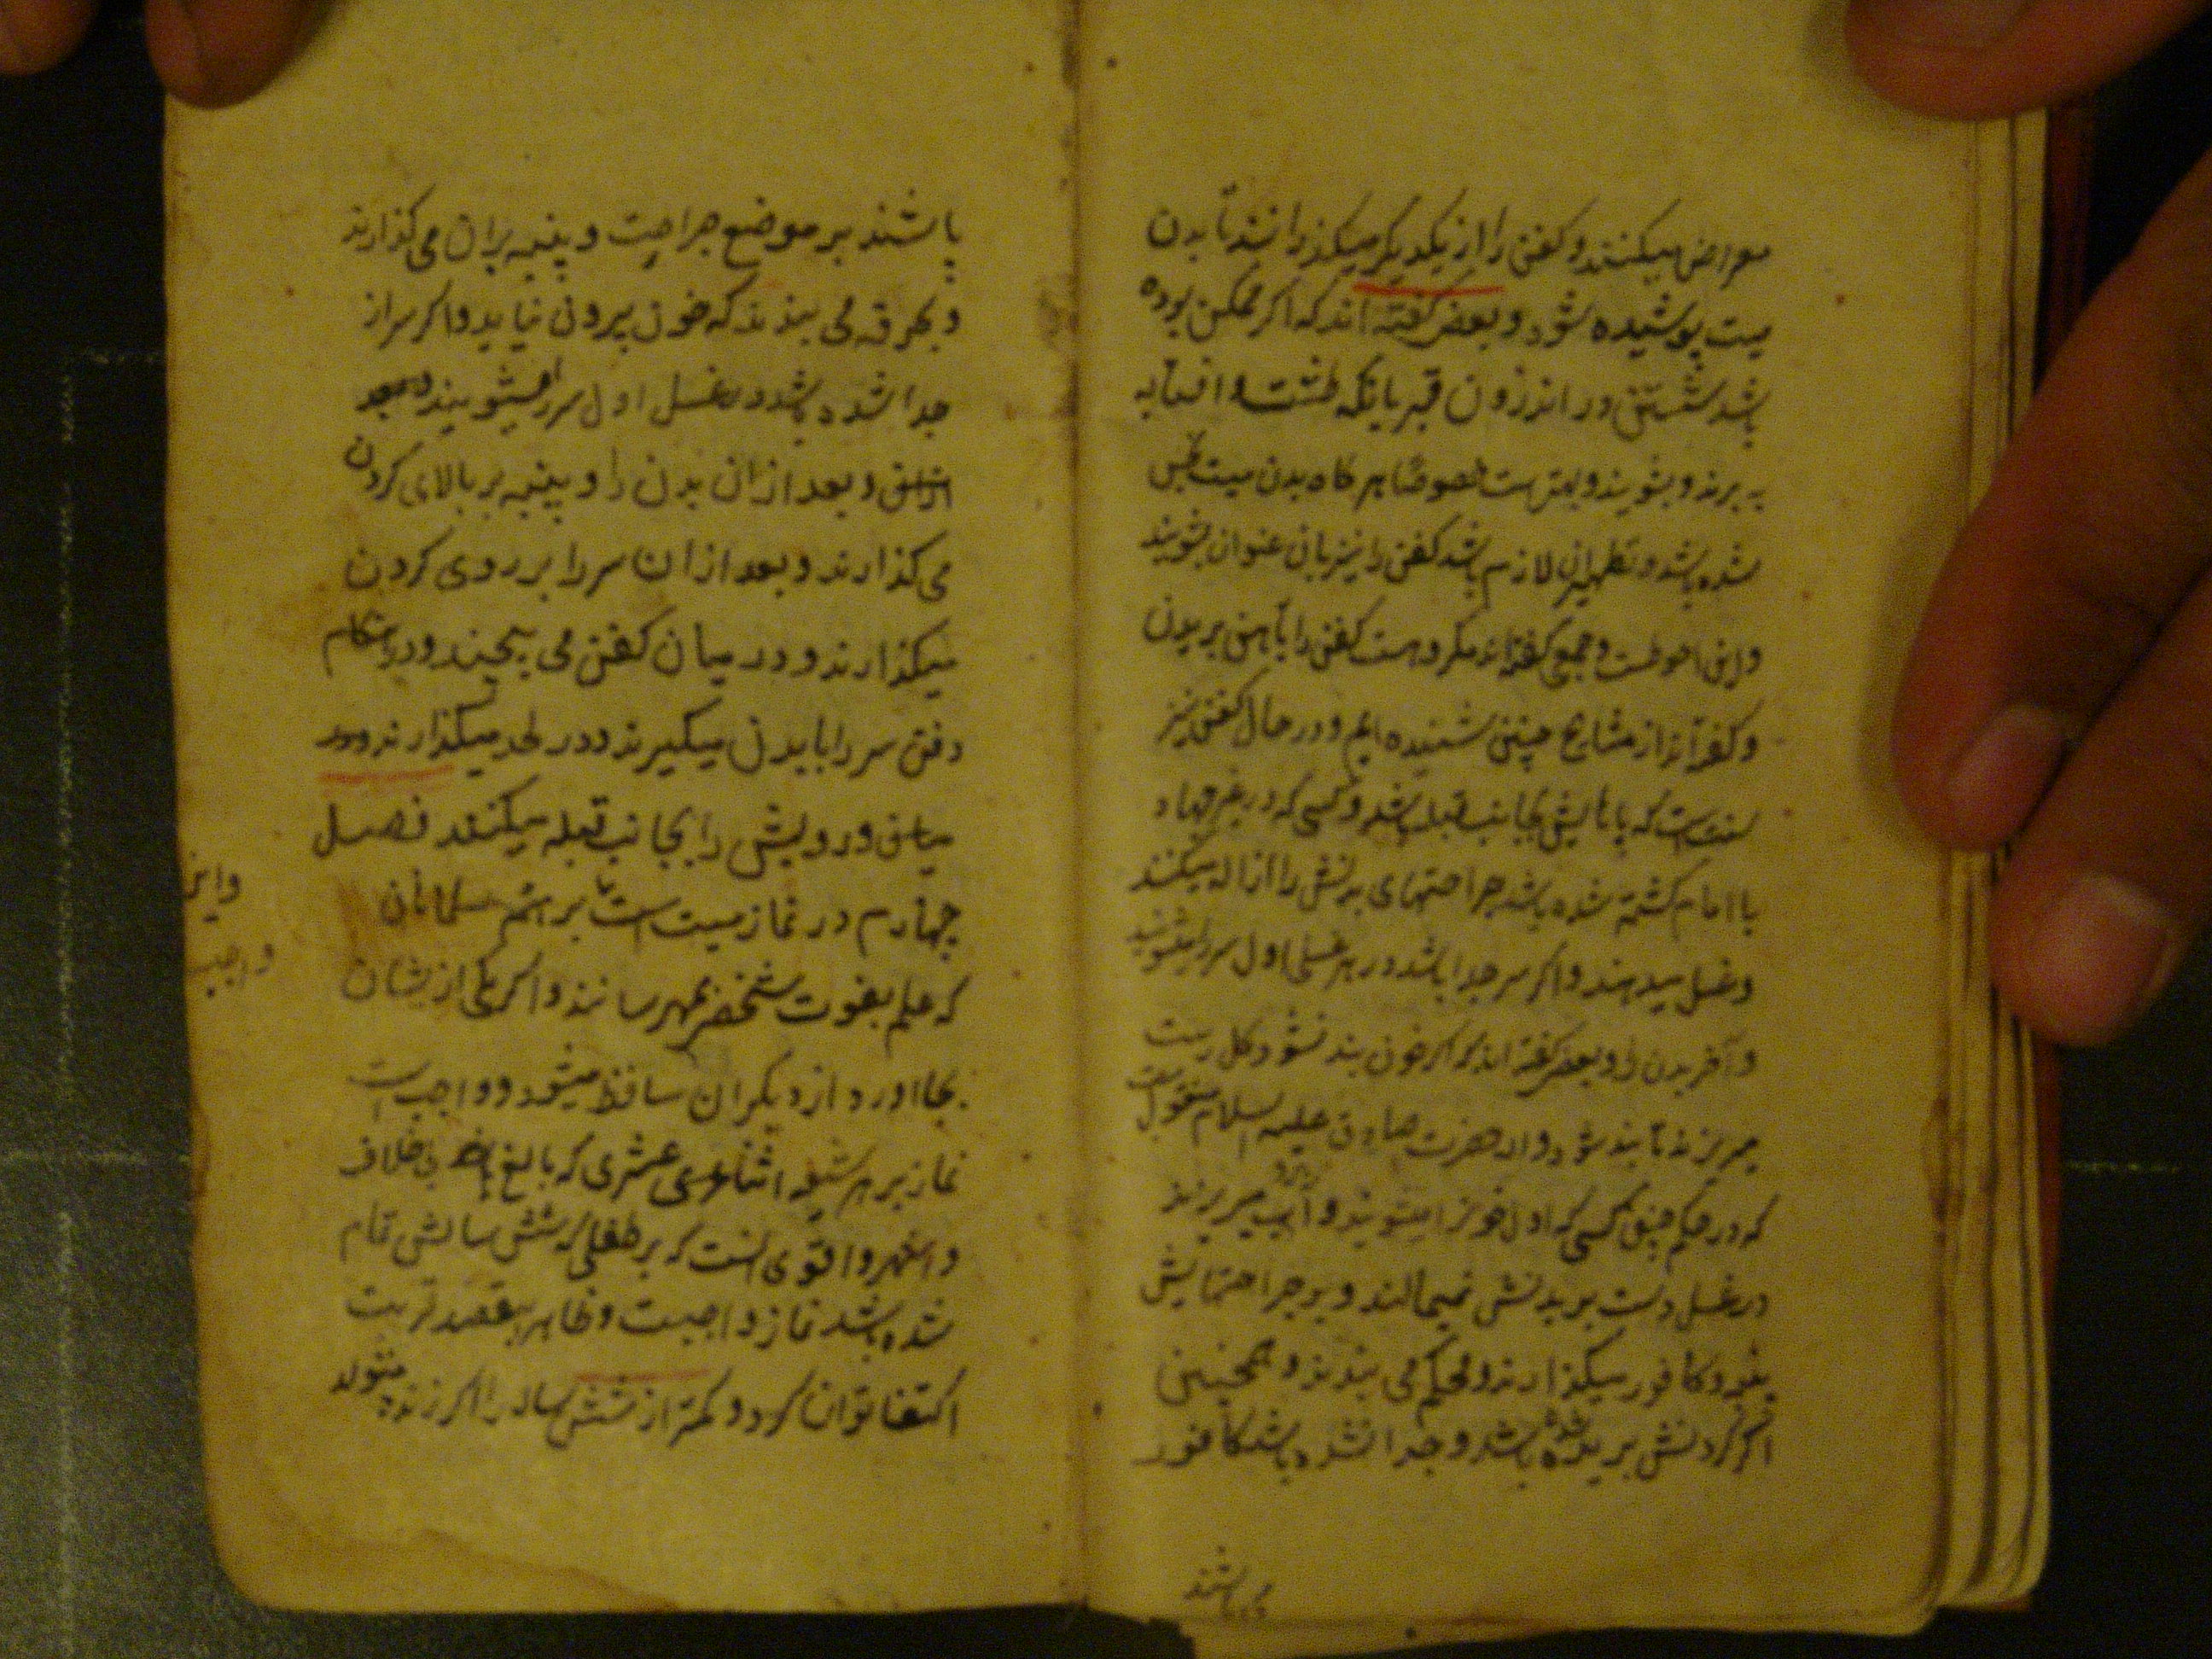 مقراض میکنند و کفن را از یکدیگر میکذرانند تا بدن
میت پوشیده شود و بعضی کفته اند که اکر ممکن بوده
باشد شستن در اندرون قبر بانکه طشت و افتابه
به برند و بشویند و بهتر است خصوصا هرکاه بدن میت نجس
شده باشد و تطهیران لازم باشد کفن را نیز بان عنوان بشویند
و این احوطست و جمعی کفته اند مکروهست کفن را باهن بریدن
و کفته اند از مشایخ چنین شنیده ایم و در حال کفن نیز
سنت است که پاهایش بجانب قبله باشد و کسی که در غیر جهاد
با امام کشته شده باشد جراحتهای بدنش را ازاله میکنند
و غسل میدهند و اکر سر جدا باشد در هر غسلی اول سر را میشویند
و آخر بدن را و بعضی کفته اند که اکر خون بند نشود کل
میریزند تا بند شود و از حضرت صادق علیه السلام منقولست
که در حکم چنین کسی که اول خونرا میشویند و آب میریزند
در غسل دست بر بدنش نمیمالند و بر جراحتهایش
پنبه و کافور میکذارند و محکم می بندند و همچنین
اکر کردنش بریده شده باشد و جدا نشده باشد کافور
می باشند
باشند بر موضع جراحت و پنبه بران می کذارند
و بخرقه می بندند که خون بیرون نیاید و اکر سر از
جدا شده باشد در غسل اول سر را میشویند و بعد
و بعد از ان بدن را و پنبه بر بالای کردن
می کذارند و بعد از ان سر را بر روی کردن
میکذارند و در میان کفن می پیچند و در هنکام
دفن سر را با بدن میکیرند و در لحد میکذارند و
و رویش را بجانب قبله میکنند فصل
چهارم در نماز میت است تا بر همه مسلمانان
که علم بفوت شخصی بهم رسانند و اکر یکی از ایشان
بجا اورد از دیکران ساقط میشود و واجب است
نماز بر هر شیعه اثنا عشری که بالغ باشد بی خلاف
و اشهر و اقوی انست که بر طفلی که شش سالش تمام
شده باشد نماز واجبست و ظاهر بقصد قربت
اکتفا توان کرد و کمتر از شش ساله را اکر زنده متولد
و این
واجب